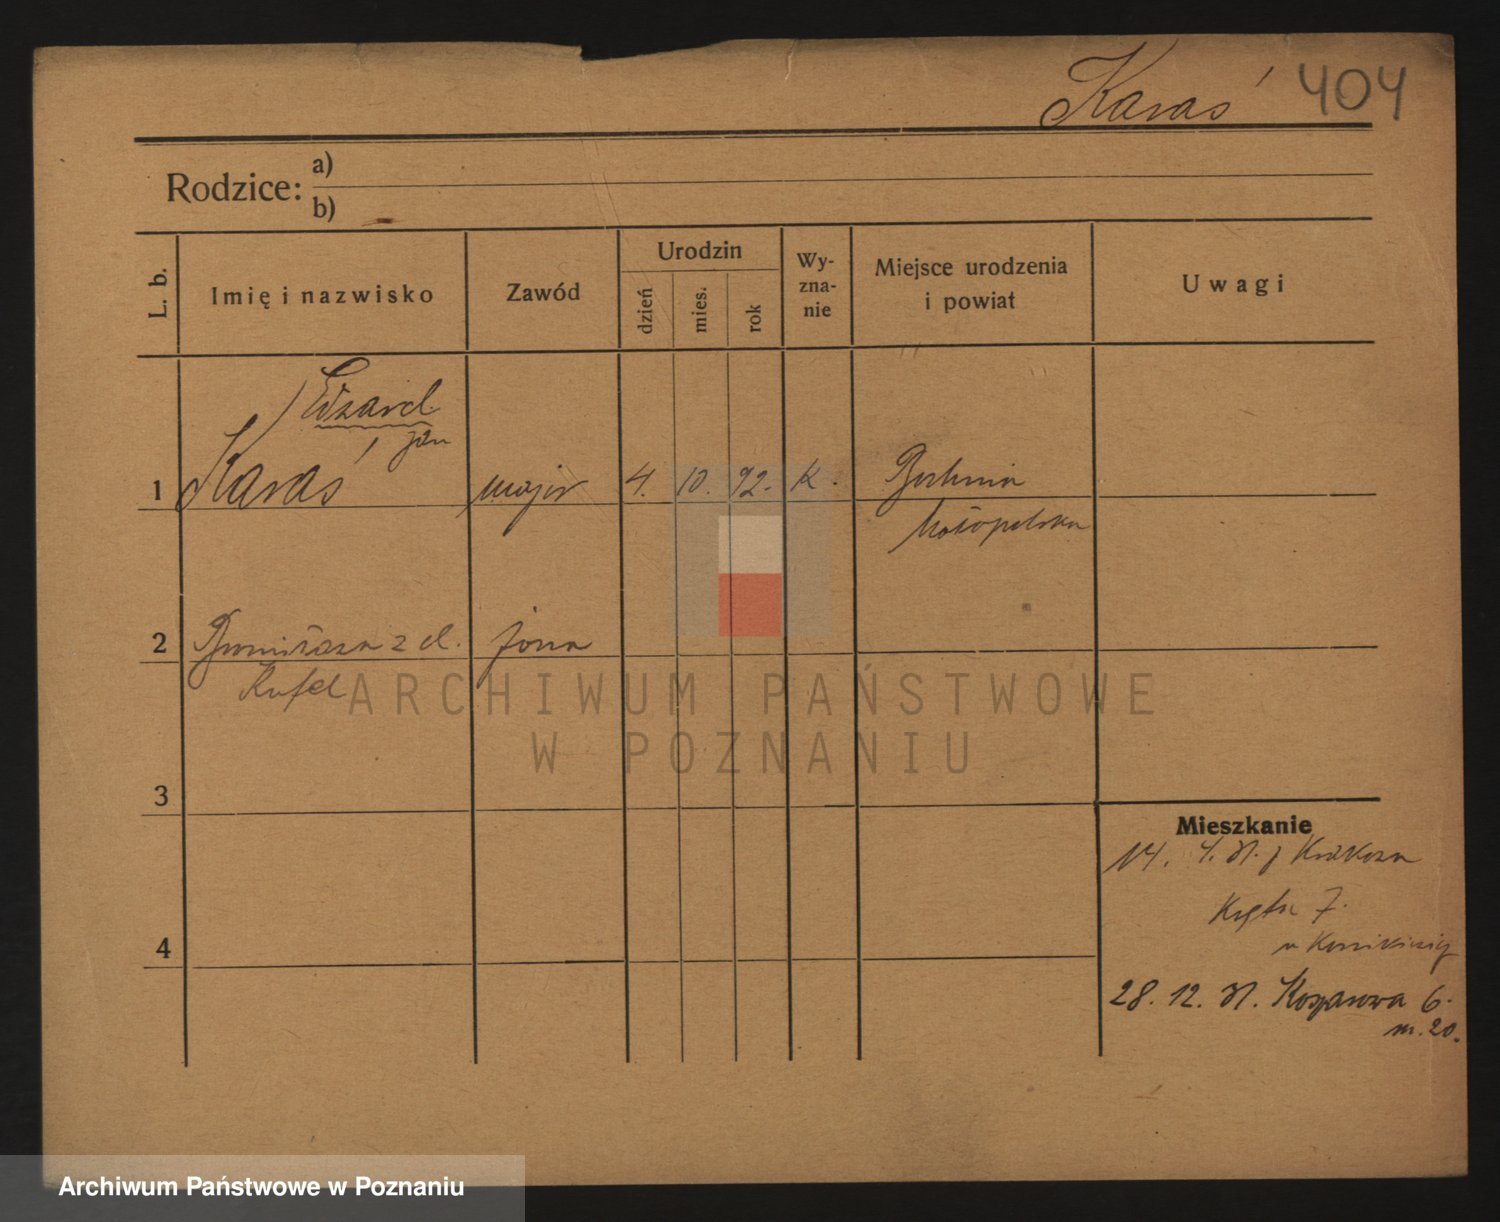 Karaś 404
Rodzice: a)
b)
L. b.
Imię i nazwisko
Zawód
Urodzin
dzień
mies.
rok
Wy-
zna-
nie
Miejsce urodzenia
i powiat
Uwagi
Edward
Jan
1 Karaś major 4. 10. 92. K. Bochnia
Małopolska
2 Bronisława z d. żona
Kufel
3
4
Mieszkanie
14. 4. z Krakowa
Kręta 7.
28. 12. Koszarowa 6.
m. 20.
ARCHIWUM PAŃSTWOWE
W POZNANIU
Archiwum Państwowe w Poznaniu